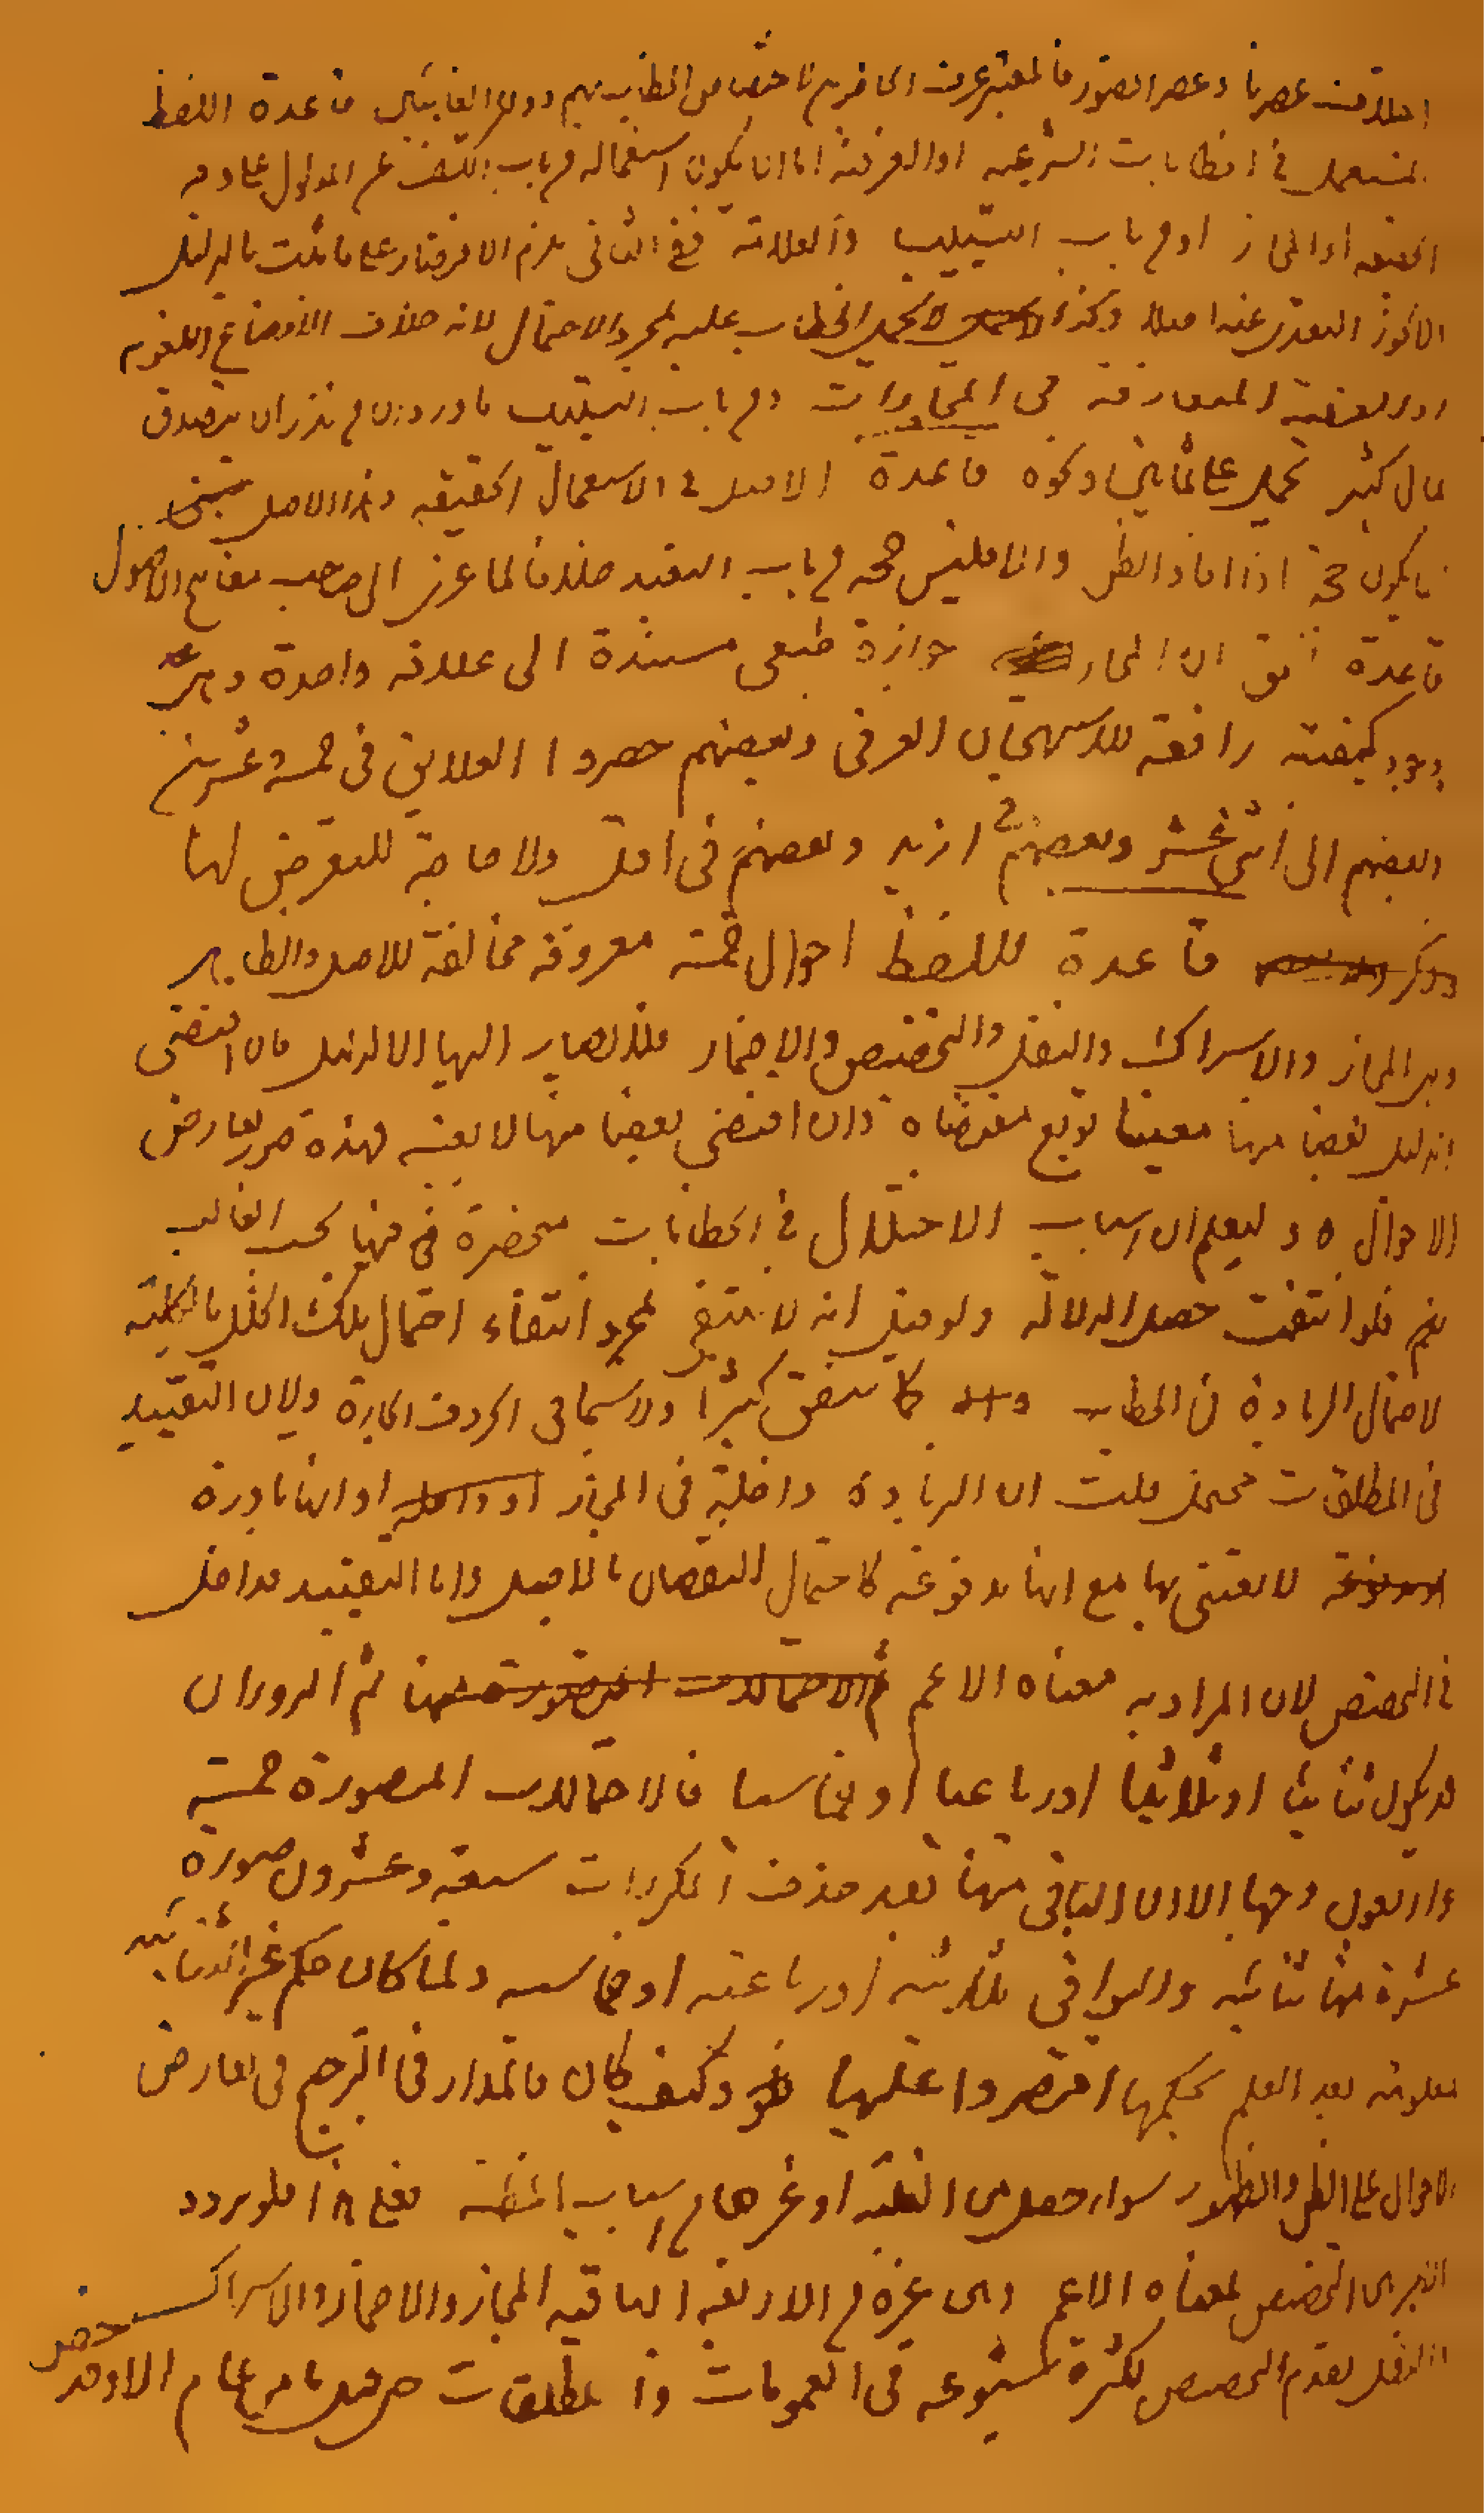 اختلاف عصرنا وعصر الصدور فالمعتبر عرف الحاضرين لاختصاص الخطاب بهم دون الغائبين قاعدة اللفظ
المستعمل في الخطابات الشرعية او العرفية اما ان يكون استعماله من باب الكشف عن المدلول على وجه
الحقيقة او المجاز او من باب التشبيه والعلاقة ففي الثاني يلزم الاقتصار على ما ثبت بالدليل
لا يجوز التعدي عنه اصلا وكذا لا يحمل الخطاب عليه بمجرد الاحتمال لانه خلاف الأوضاع اللغوية
او العرفية المتعارفة في المحاورات ومن باب ما ورد من نذر ان يتصدق
بمال كثير يحمل على ثمانين ونحوه قاعدة الاصل في الاستعمال الحقيقة وهذا الاصل
يكون حجة اذا افاد الظن والا فليس حجة من باب التعبد خلافا لما عزى الى صاحب مفاتيح الاصول
قاعدة الحق ان المجاز جوازه طبعي مستندة الى علاقة واحدة وهي
وجود كيفية رافعة للاستهجان العرفي وبعضهم حصروا العلايق في خمسة وعشرين
وبعضهم الى اثنى عشر وبعضهم في ازيد وبعضهم في اقل ولا حاجة للتعرض لها
وذكر قاعدة لللفظ احوال خمسة معروفة مخالفة للاصل والظاهر
وهي المجاز والاشتراك والنقل والتخصيص والاضمار فلا يصار اليها الا لدليل فان اقتضى
الدليل بعضا منها معينا توبع مقتضاه وان اقتضى بعضا منها لا بعينه فهذه صور تعارض
الاحوال وليعلم ان اسباب الاختلال في الخطابات منحصرة في فيها بحسب الغالب
نعم فلو انتفت حصل الدلالة ولو قيل انه لا ينتفي بمجرد انتفاء احتمال تلك الخلل بالكلية
لاحتمال الزيادة في الخطاب كما يتفق كثيرا ولا سيما في الحروف الجارة ولان التقييد
في المطلقات محتمل قلت ان الزيادة داخلة في المجاز او انها نادرة
لا يعتنى بها مع انها مدفوعة كاحتمال النقصان بالاصل واما التقييد فداخل
في التخصيص لان المراد به معناه الاعم ثم الاحتمالات المتصورة منها ثم الدوران
قد يكون ثنائيا او ثلاثيا او رباعيا او خماسيا فالاحتمالات المتصورة خمسة
واربعون وجها الا ان الباقي منها بعد حذف المكررات ستة وعشرون صورة
عشرة منها ثنائية والبواقي ثلاثية او رباعية او خماسية ولما كان حكم غير الثنائية
معلومة بعد العلم بحكمها اقتصروا عليها وكيف كان فالمدار في الترجيح في تعارض
الاحوال على الظن والظهور سواء حصل من الغلبة او غيرها من اسباب المظنة فعلى هذا فلو تردد
الامر بين التخصيص بمعناه الاعم وبين غيره من الاربعة الباقية المجاز والاضمار والاشتراك
والنقل يقدم التخصيص لكثرة شيوعه في العمومات والمطلقات حتى قيل ما من عام الا وقد خص